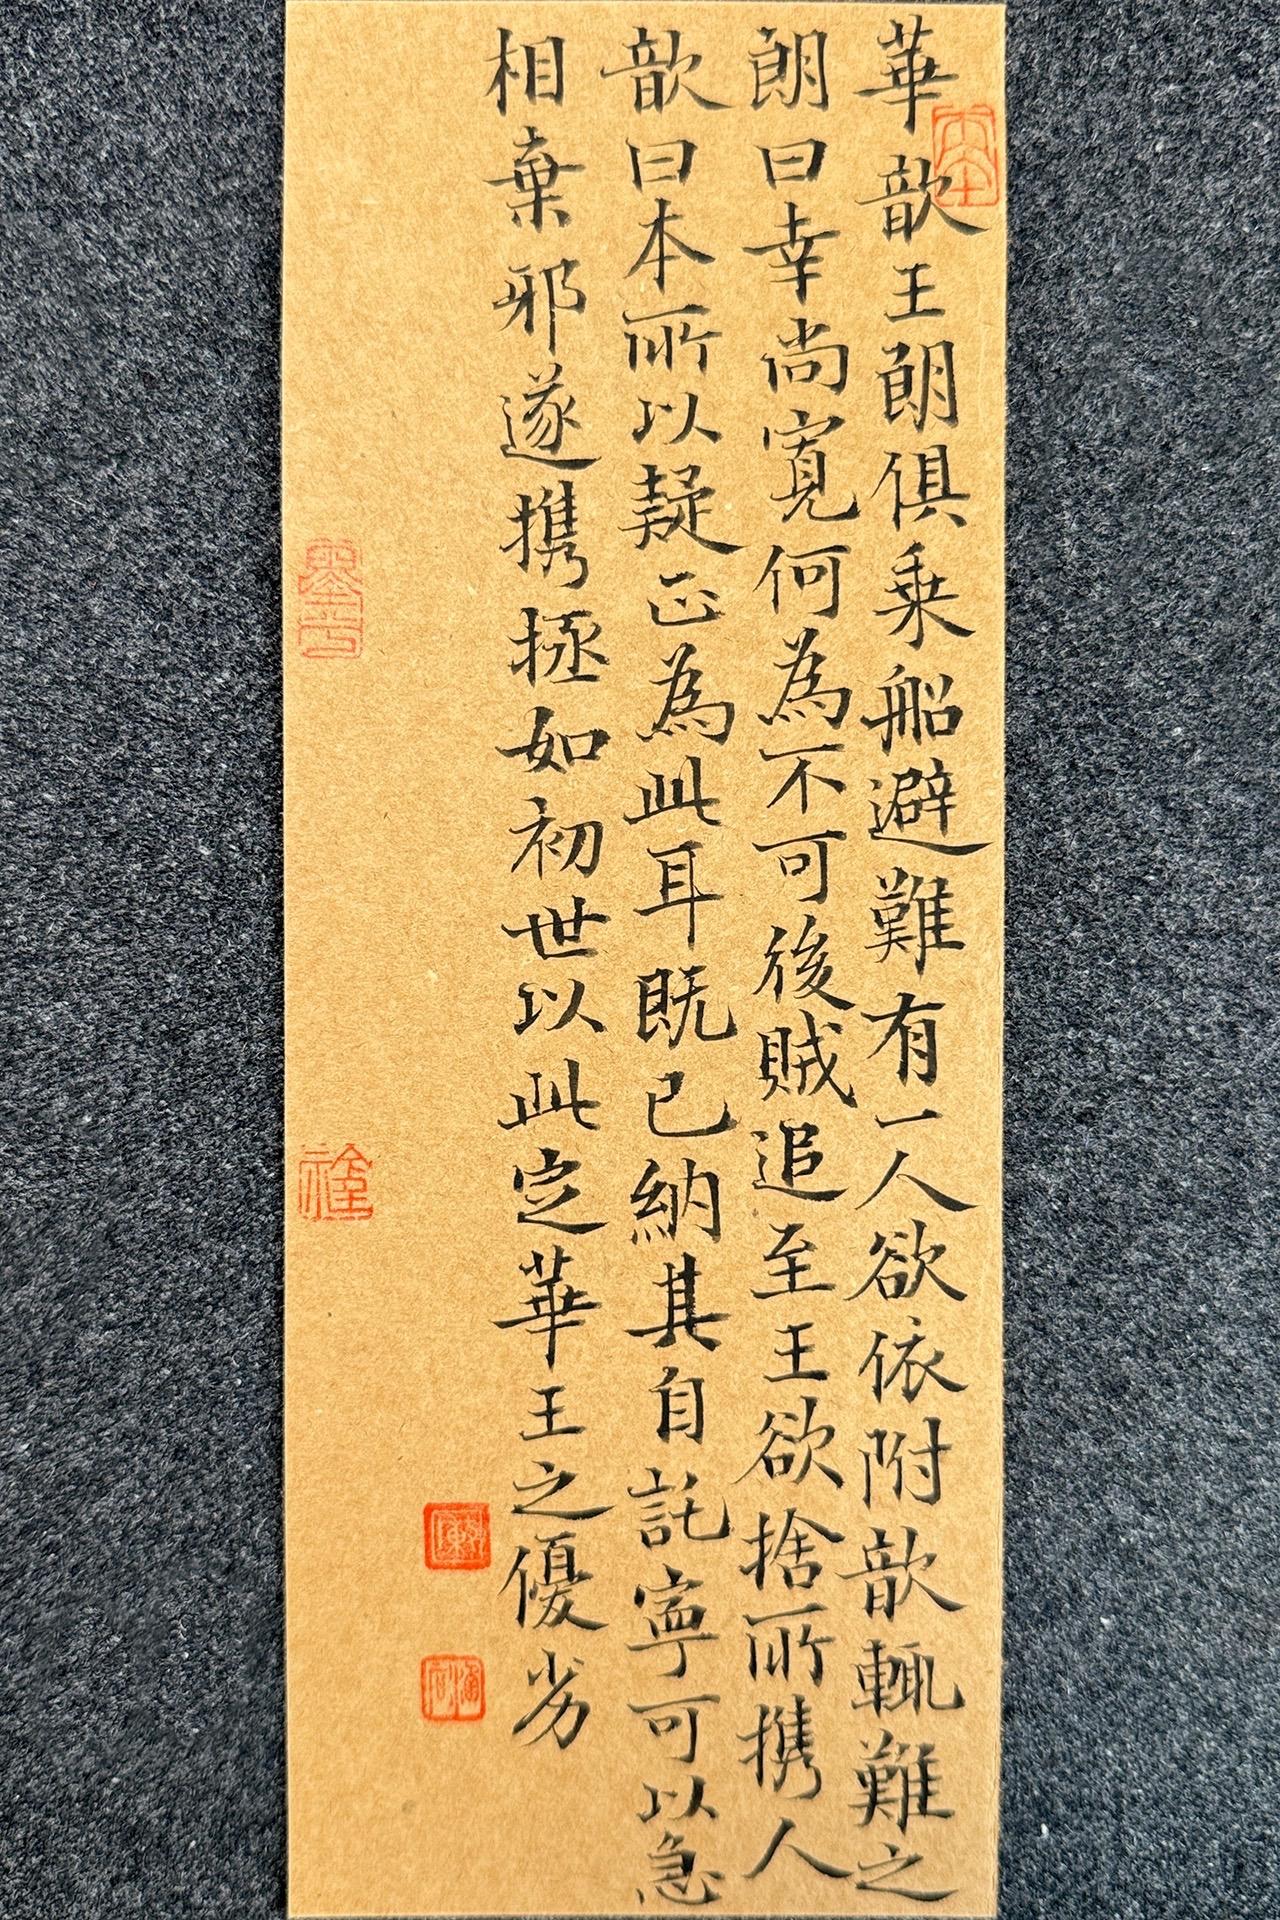 華歆王朗俱乗船避難有一人欲依附歆輒難之
朗曰幸尚寛何為不可後賊追至王欲捨所携人
歆曰本所以疑正為此耳既已納其自託寧可以急
相棄邪遂携拯如初世以此定華王之優劣